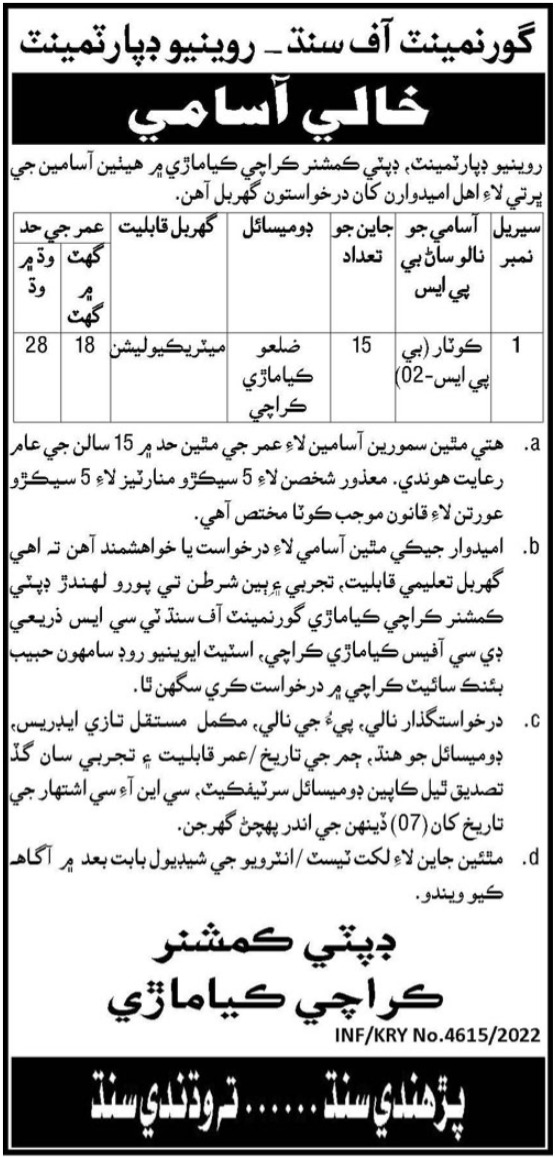 گورنمينٽ آف سنڌ ـ روينيو ڊپارٽمينٽ
خالي آسامي
روينيو ڊپارٽمينٽ، ڊپٽي ڪمشنر ڪراچي ڪياماڙي ۾ هيٺين آسامين جي
ڀرتي لاءِ اهل اميدوارن کان درخواستون گهربل آهن.
سيريل نمبر | آسامي جو نالو ساڻ بي پي ايس | جاين جو تعداد | ڊوميسائل | گهربل قابليت | عمر جي حد
گهٽ ۾ گهٽ | وڌ ۾ وڌ
1 | ڪوٽار (بي پي ايس-02) | 15 | ضلعو ڪياماڙي ڪراچي | ميٽريڪيوليشن | 18 | 28
a. هتي مٿين سمورين آسامين لاءِ عمر جي مٿين حد ۾ 15 سالن جي عام
رعايت هوندي. معذور شخصن لاءِ 5 سيڪڙو منارٽيز لاءِ 5 سيڪڙو
عورتن لاءِ قانون موجب ڪوٽا مختص آهي.
b. اميدوار جيڪي مٿين آسامي لاءِ درخواست يا خواهشمند آهن ته اهي
گهربل تعليمي قابليت، تجربي ۽ ٻين شرطن تي پورو لهندڙ ڊپٽي
ڪمشنر ڪراچي ڪياماڙي گورنمينٽ آف سنڌ ٽي سي ايس ذريعي
ڊي سي آفيس ڪياماڙي ڪراچي، اسٽيٽ ايوينيو روڊ سامهون حبيب
بئنڪ سائيٽ ڪراچي ۾ درخواست ڪري سگهن ٿا.
c. درخواستگذار نالي، پيءُ جي نالي، مڪمل مستقل تازي ايڊريس،
ڊوميسائل جو هنڌ، ڄم جي تاريخ/عمر قابليت ۽ تجربي سان گڏ
تصديق ٿيل ڪاپين ڊوميسائل سرٽيفڪيٽ، سي اين آءِ سي اشتهار جي
تاريخ کان (07) ڏينهن جي اندر پهچڻ گهرجن.
d. مٿئين جاين لاءِ لکت ٽيسٽ/انٽرويو جي شيڊيول بابت بعد ۾ آگاهه
ڪيو ويندو.
ڊپٽي ڪمشنر
ڪراچي ڪياماڙي
INF/KRY No.4615/2022
پڙهندي سنڌ ...... ته وڌندي سنڌ